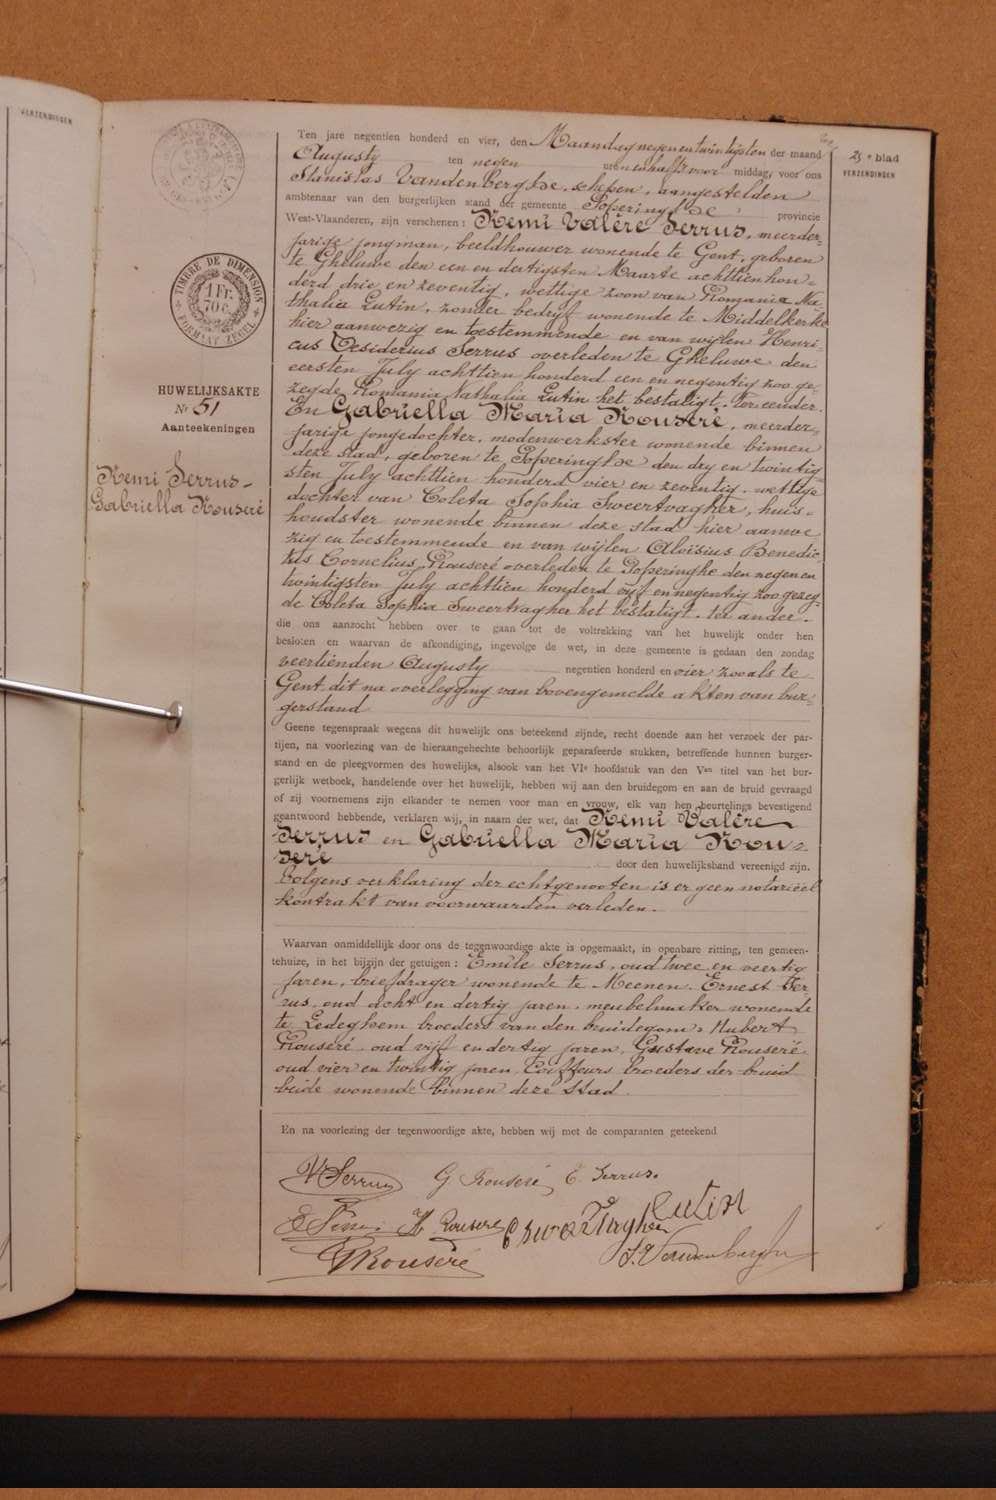 VERZENDINGEN
25e blad
VERZENDINGEN
TIMBRE DE DIMENSION
1 Fr.
70 c.
FORMAAT ZEGEL
HUWELIJKSAKTE
Nr 51
Aanteekeningen
Remi Serrus-
Gabriella Rouseré
Ten jare negentien honderd en vier, den Maandag negenentwintigsten der maand
Augusty ten negen uren en half voor middag, voor ons
Stanislas VandenBerghe, schepen, aangestelden
ambtenaar van den burgerlijken stand der gemeente Poperinghe provincie
West-Vlaanderen, zijn verschenen: Remi Valère Serrus, meerder-
jarige jongman, beeldhouwer wonende te Gent, geboren
te Gheluwe den een en dertigsten Maarte achttien hon-
derd drie en zeventig, wettige zoon van Romanie Na-
thalia Lutin, zonder bedrijf wonende te Middelkerke
hier aanwezig en toestemmende en van wijlen Henri-
cus Desiderius Serrus overleden te Gheluwe den
eersten July achttien honderd een en negentig zoo ge-
zegde Romania Nathalia Lutin het bestatigt. ter eender.
En Gabriella Maria Rouseré, meerder-
jarige jongedochter, modenwerkster wonende binnen
deze stad, geboren te Poperinghe den dry en twintig-
sten July achttien honderd vier en zeventig. wettige
dochter van Coleta Sophia Sweertvagher, huis-
houdster wonende binnen deze stad hier aanwe
zig en toestemmende en van wijlen Aloisius Benedic-
tus Cornelius Rouseré overleden te Poperinghe den negen en
twintigsten July achttien honderd vijf en negentig zoo gezeg-
de Coleta Sophia Sweertvagher het bestatigt. ter ander.
die ons aanzocht hebben over te gaan tot de voltrekking van het huwelijk onder hen
besloten en waarvan de afkondiging, ingevolge de wet, in deze gemeente is gedaan den zondag
veertienden Augusty negentien honderd en vier zooals te
Gent dit na overlegging van bovengemelde akten van bur-
gerstand
Geene tegenspraak wegens dit huwelijk ons beteekend zijnde, recht doende aan het verzoek der par-
tijen, na voorlezing van de hieraangehechte behoorlijk geparafeerde stukken, betreffende hunnen burger-
stand en de pleegvormen des huwelijks, alsook van het VIe hoofdstuk van den Ven titel van het bur-
gerlijk wetboek, handelende over het huwelijk, hebben wij aan den bruidegom en aan de bruid gevraagd
of zij voornemens zijn elkander te nemen voor man en vrouw, elk van hen beurtelings bevestigend
geantwoord hebbende, verklaren wij, in naam der wet, dat Remi Valère
Serrus en Gabriella Maria Rou-
seré door den huwelijksband vereenigd zijn.
Volgens verklaring der echtgenooten is er geen notariëel
kontrakt van voorwaarden verleden.
Waarvan onmiddellijk door ons de tegenwoordige akte is opgemaakt, in openbare zitting, ten gemeen-
tehuize, in het bijzijn der getuigen: Emile Serrus, oud twee en veertig
jaren, briefdrager wonende te Meenen. Ernest Ser
rus, oud acht en dertig jaren, meubelmaker wonende
te Ledeghem broeders van den bruidegom. Hubert
Rouseré oud vijf en dertig jaren, Gustave Rouseré
oud vier en twintig jaren, Coiffeurs broeders der bruid
beide wonende binnen deze stad.
En na voorlezing der tegenwoordige akte, hebben wij met de comparanten geteekend
V Serrus G Rouseré E. Serrus.
H Rouseré Lutin
G Rouseré S. Vandenberghe